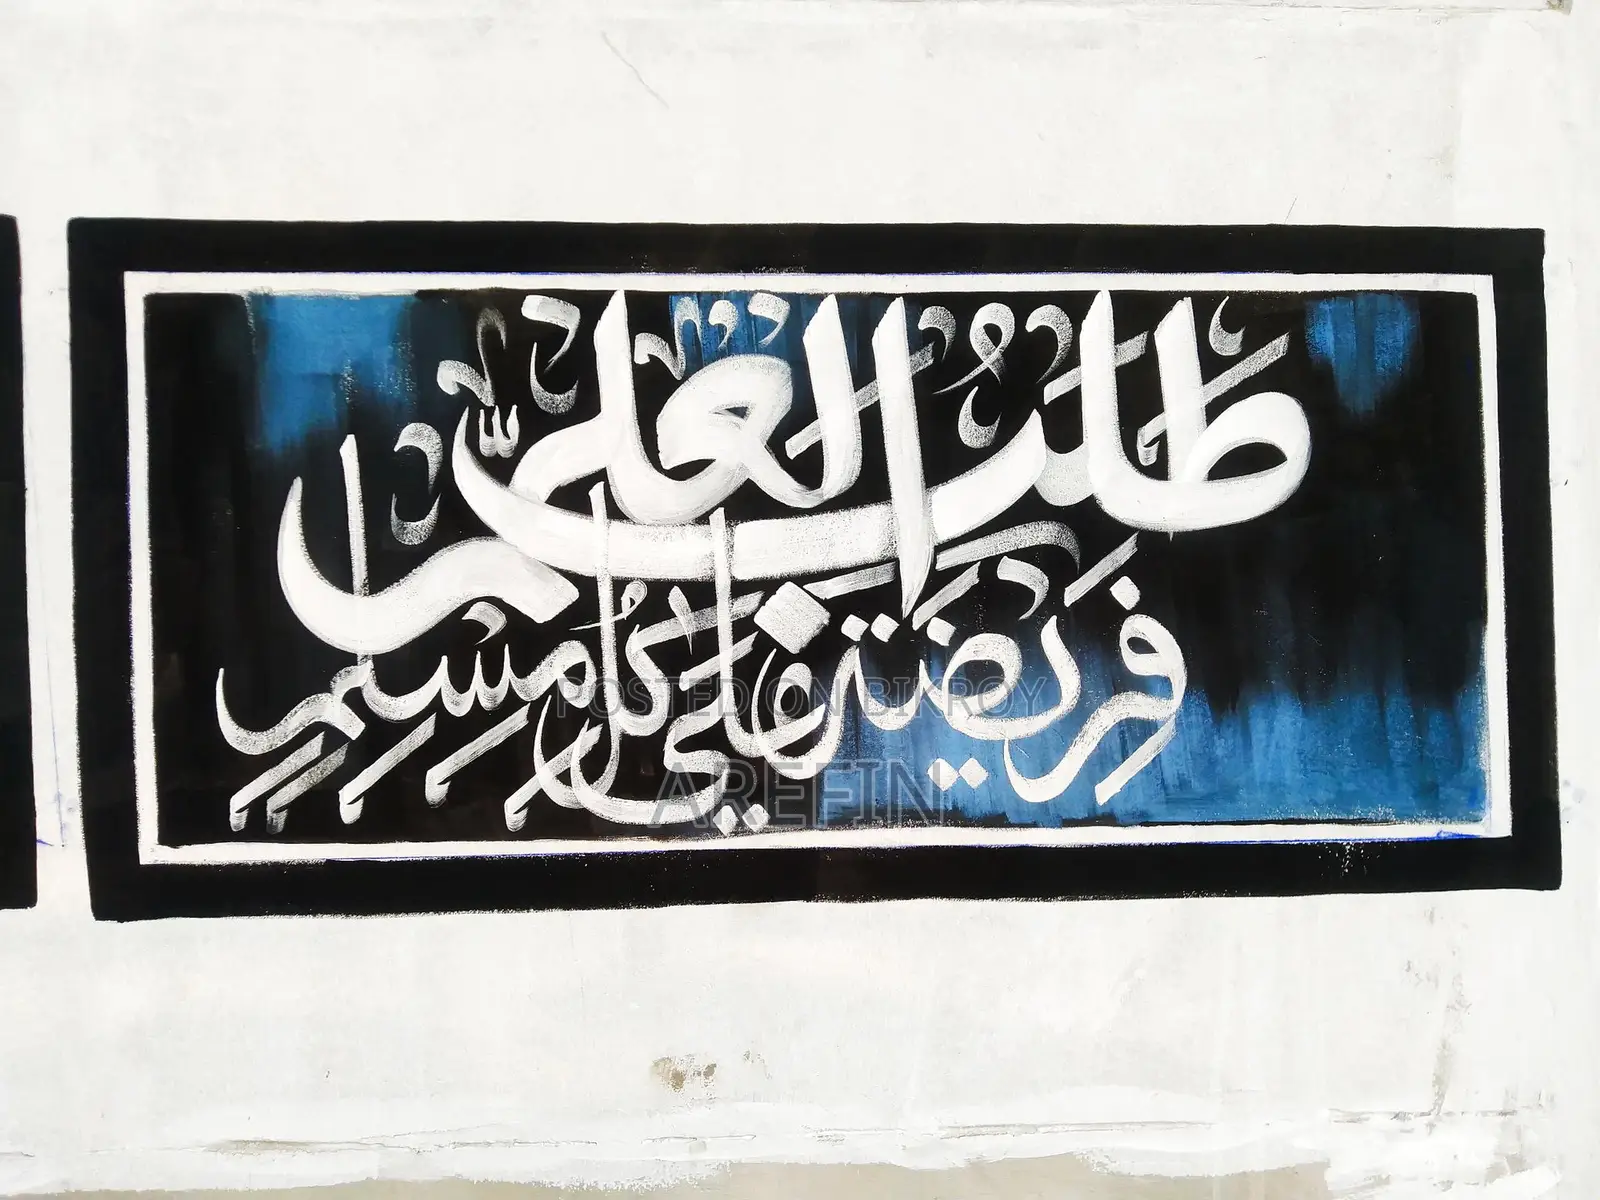 طلب العلم
فريضة على كل مسلم
POSTED ON BIKROY
AREFIN